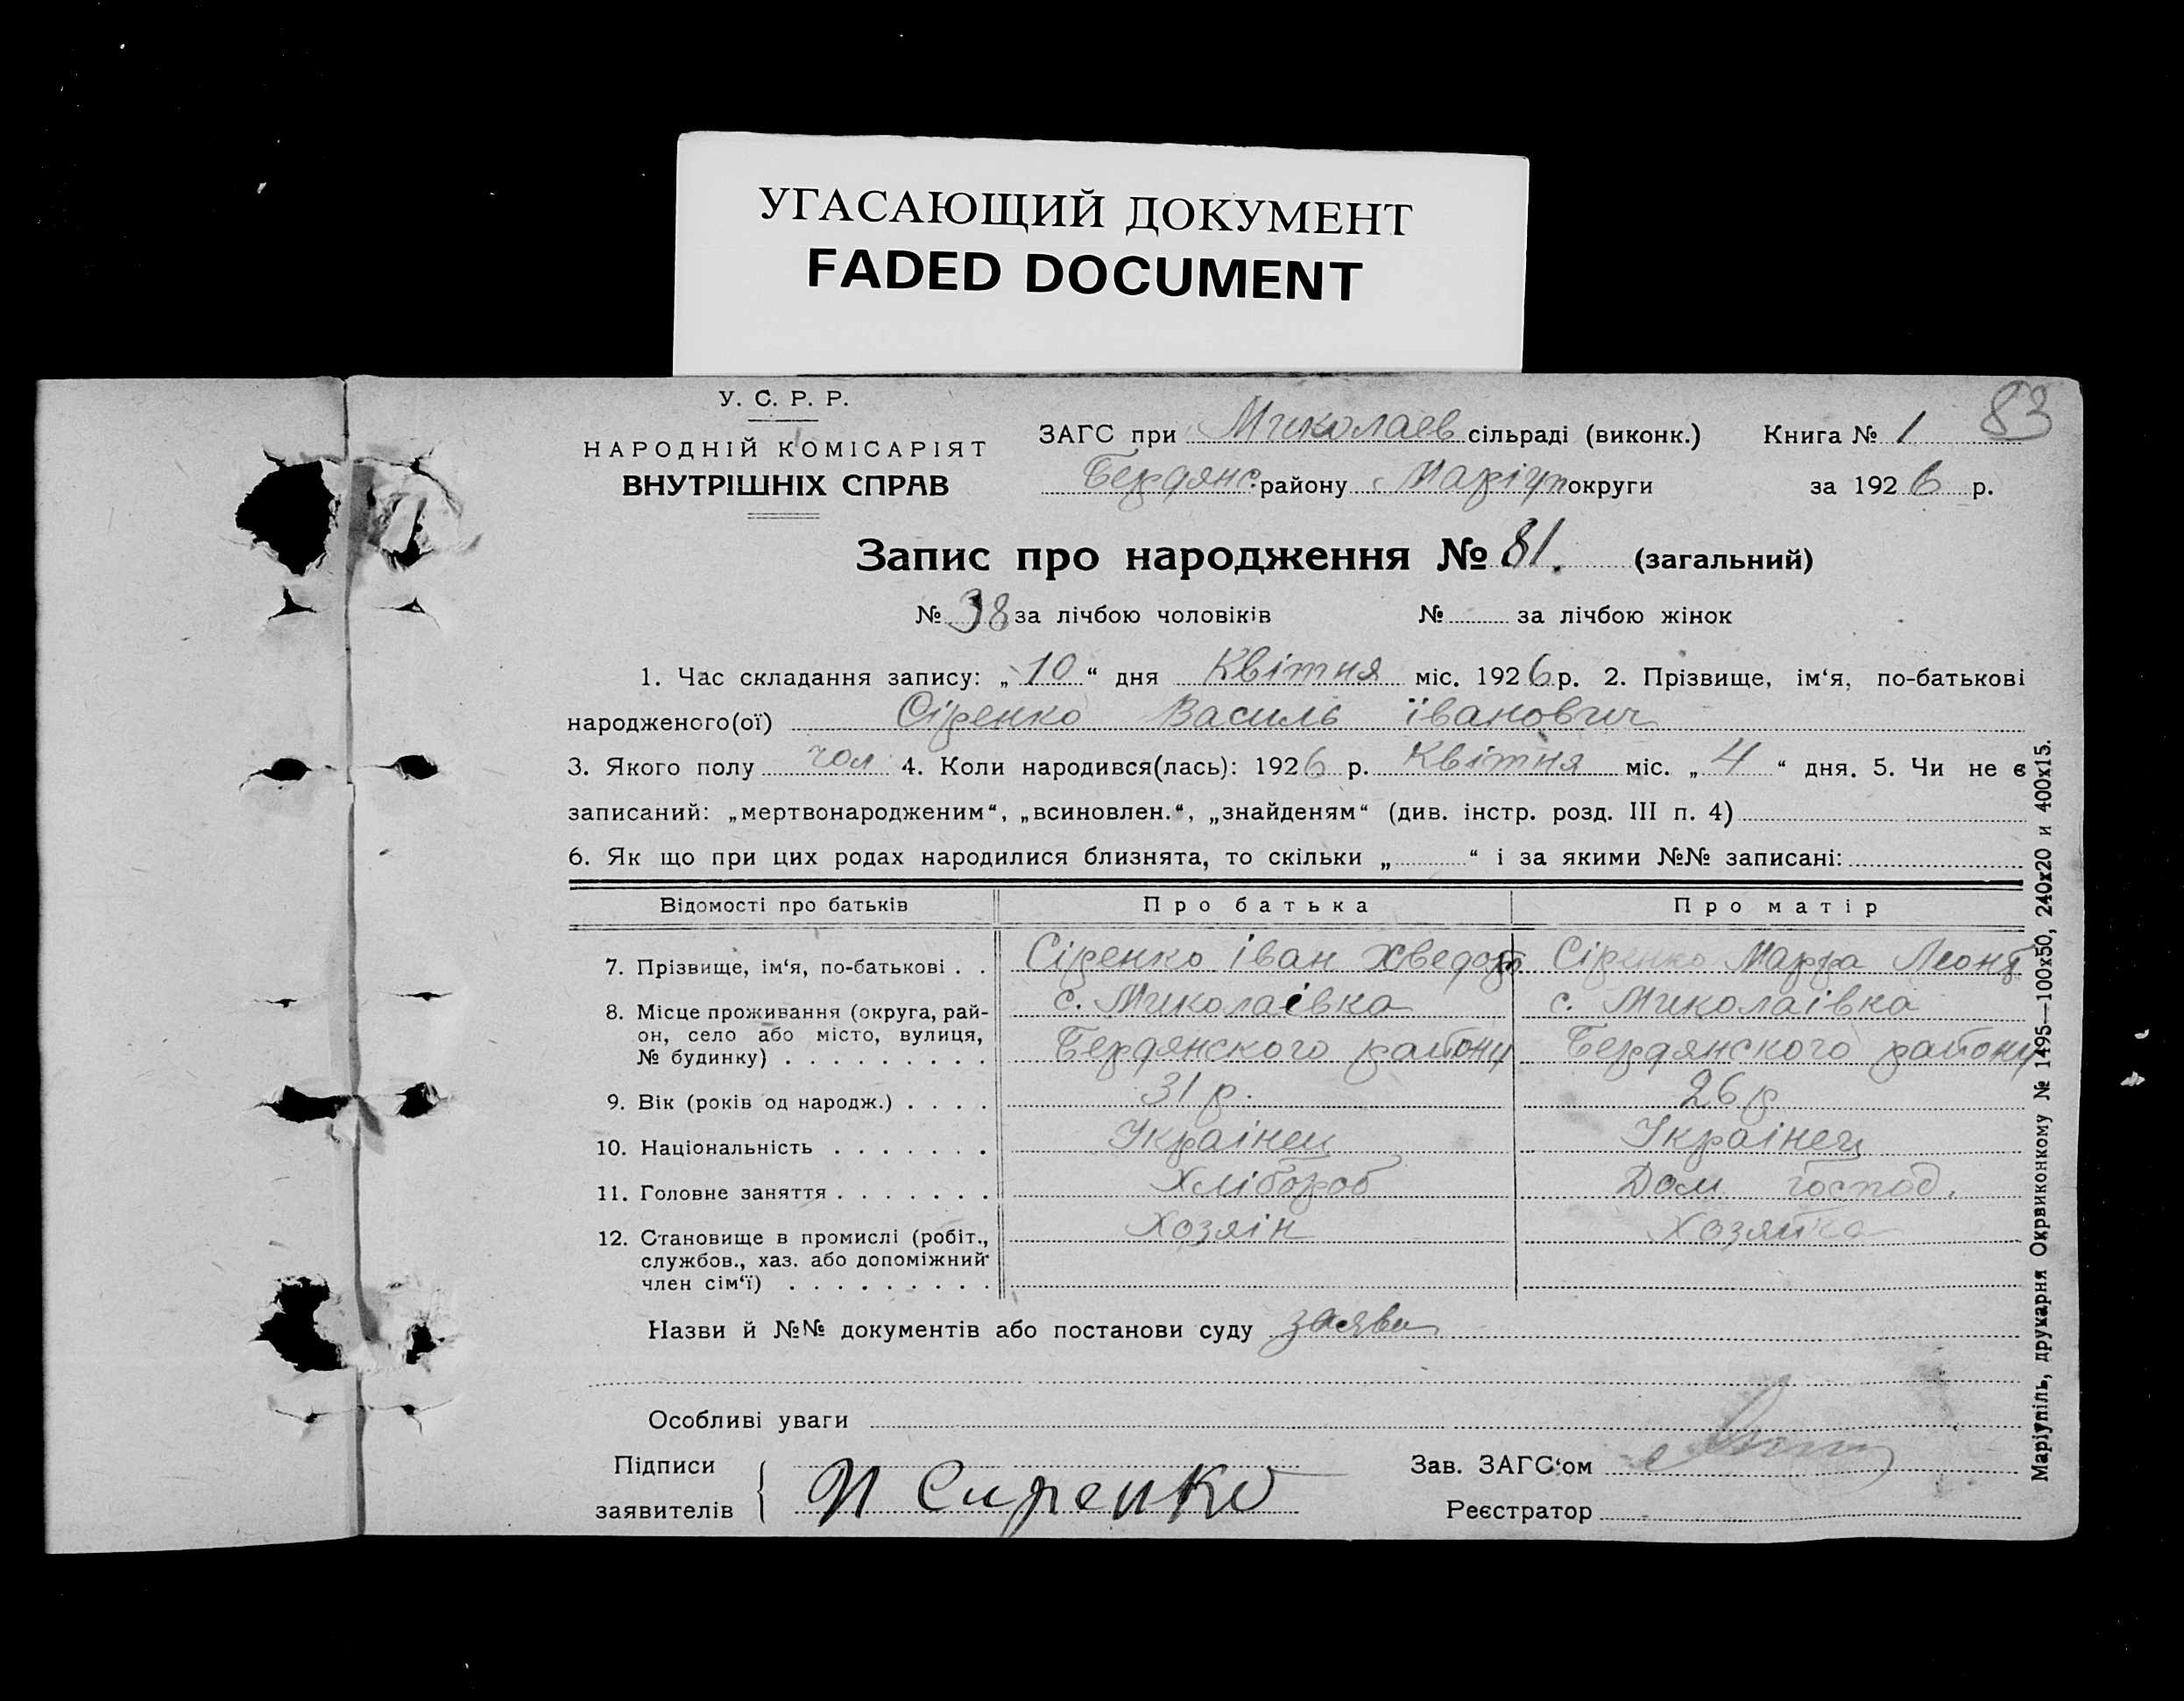 УГАСАЮЩИЙ ДОКУМЕНТ
FADED DOCUMENT
83
У. С. Р. Р.
НАРОДНІЙ КОМІСАРІЯТ
ВНУТРІШНІХ СПРАВ
ЗАГС при Миколаев сільраді (виконк.) Книга № 1
Бердянс. району Маріуп округи за 1926 р.
Запис про народження № 81. (загальний)
№ 38 за лічбою чоловіків № за лічбою жінок
1. Час складання запису: „10“ дня Квітня міс. 1926 р. 2. Прізвище, ім‘я, по-батькові
народженого(ої) Сіренко Василь іванович
3. Якого полу чол 4. Коли народився(лась): 1926 р. Квітня міс. „4“ дня. 5. Чи не є
записаний: „мертвонародженим“, „всиновлен.“, „знайденям“ (див. інстр. розд. III п. 4)
6. Як що при цих родах народилися близнята, то скільки „ “ і за якими №№ записані:
Відомості про батьків Про батька Про матір
7. Прізвище, ім‘я, по-батькові . . Сіренко іван Хведот Сіренко Марфа Леонт
8. Місце проживання (округа, рай- с. Миколаівка с. Миколаівка
он, село або місто, вулиця,
№ будинку) . . . . . . . . . Бердянского району Бердянского району
9. Вік (років од народж.) . . . . 31 р. 26 р
10. Національність . . . . . . . Украінец Украінец
11. Головне заняття . . . . . . . Хлібороб Дом господ.
12. Становище в промислі (робіт., Хозяін Хозяйка
службов., хаз. або допоміжний
член сім‘ї) . . . . . . . . .
Назви й №№ документів або постанови суду заява
Особливі уваги
Підписи
заявителів И Сиренко
Зав. ЗАГС‘ом
Реєстратор
Маріупіль, друкарня Окрвиконкому № 1495—100х50, 240х20 и 400х15.